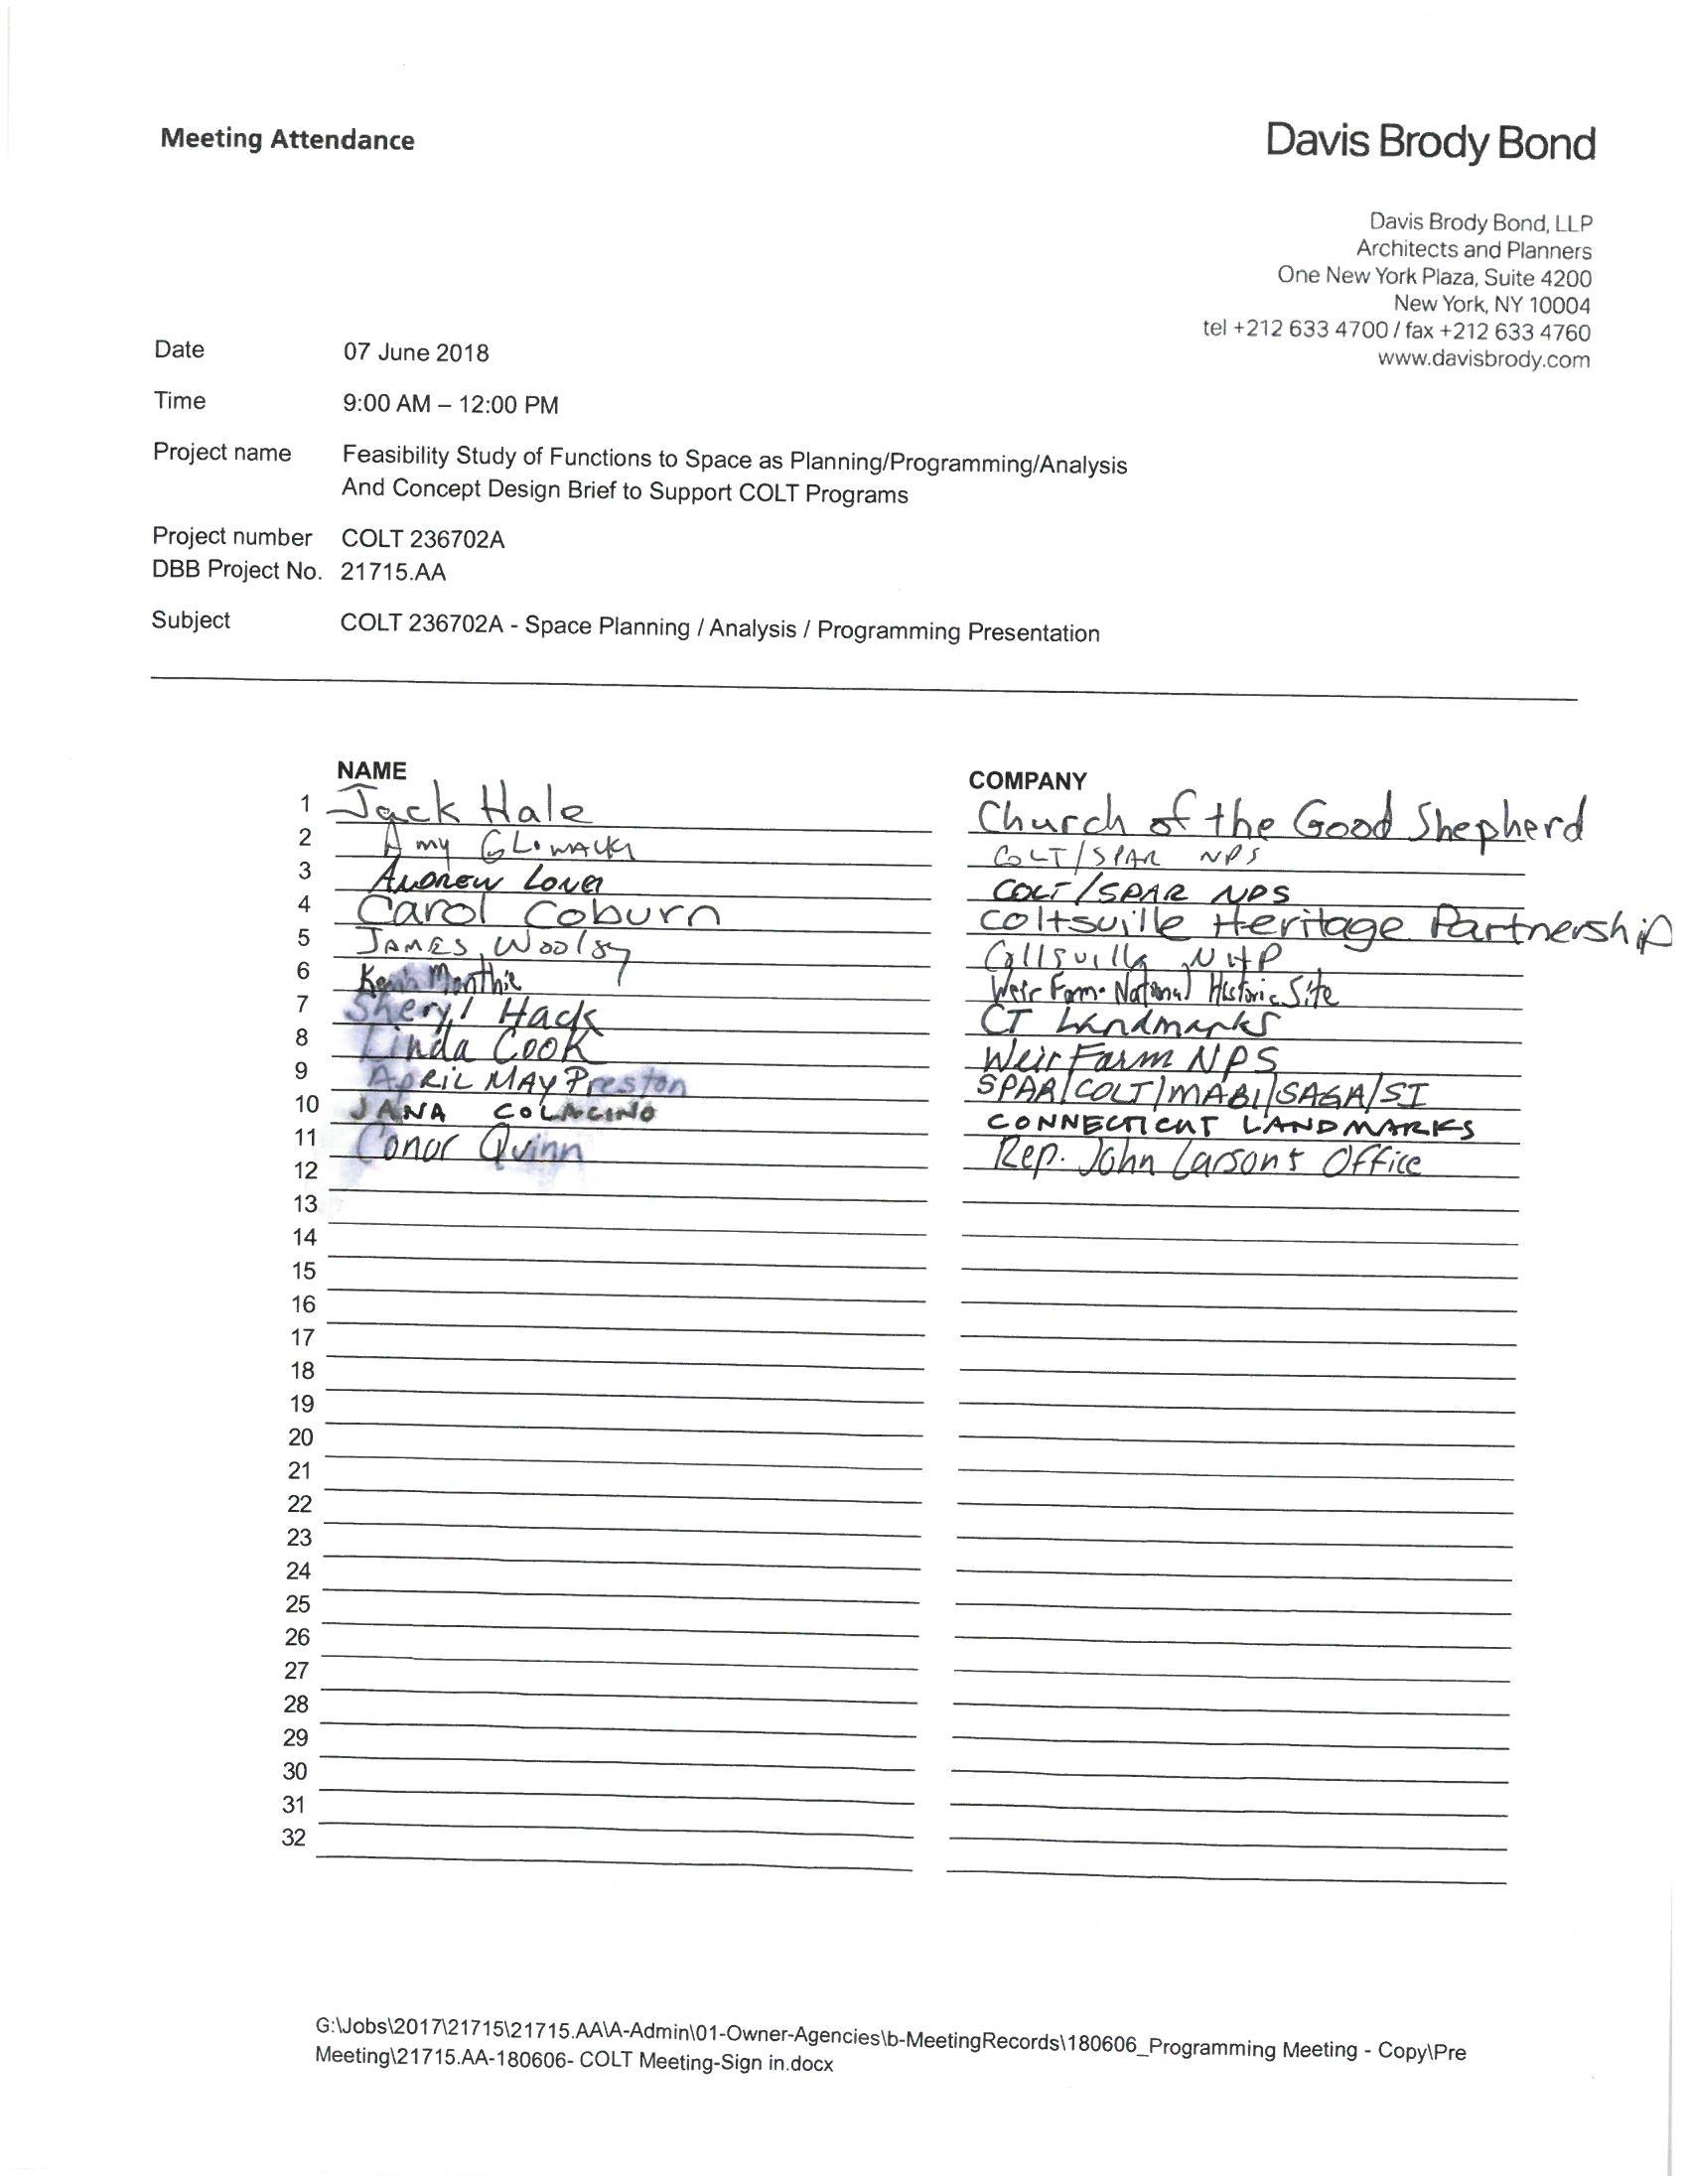 Meeting Attendance
Davis Brody Bond
Davis Brody Bond, LLP
Architects and Planners
One New York Plaza, Suite 4200
New York, NY 10004
tel +212 633 4700 / fax +212 633 4760
www.davisbrody.com
Date 07 June 2018
Time 9:00 AM – 12:00 PM
Project name Feasibility Study of Functions to Space as Planning/Programming/Analysis
And Concept Design Brief to Support COLT Programs
Project number COLT 236702A
DBB Project No. 21715.AA
Subject COLT 236702A - Space Planning / Analysis / Programming Presentation
NAME COMPANY
1 Jack Hale Church of the Good Shepherd
2 Amy Glowacki COLT/SPAR NPS
3 Andrew Lover COLT/SPAR NPS
4 Carol Coburn Coltsville Heritage Partnership
5 James Woolsey NHP
6 Kevin Monthie Weir Farm National Historic Site
7 Sheryl Hack CT Landmarks
8 Linda Cook Weir Farm NPS
9 April MAY Preston SPAR/COLT/MABI/SAGA/SI
10 JANA COLACINO CONNECTICUT LANDMARKS
11 Conor Quinn Rep. John Larson's Office
12
13
14
15
16
17
18
19
20
21
22
23
24
25
26
27
28
29
30
31
32
G:\Jobs\2017\21715\21715.AA\A-Admin\01-Owner-Agencies\b-MeetingRecords\180606_Programming Meeting - Copy\Pre
Meeting\21715.AA-180606- COLT Meeting-Sign in.docx